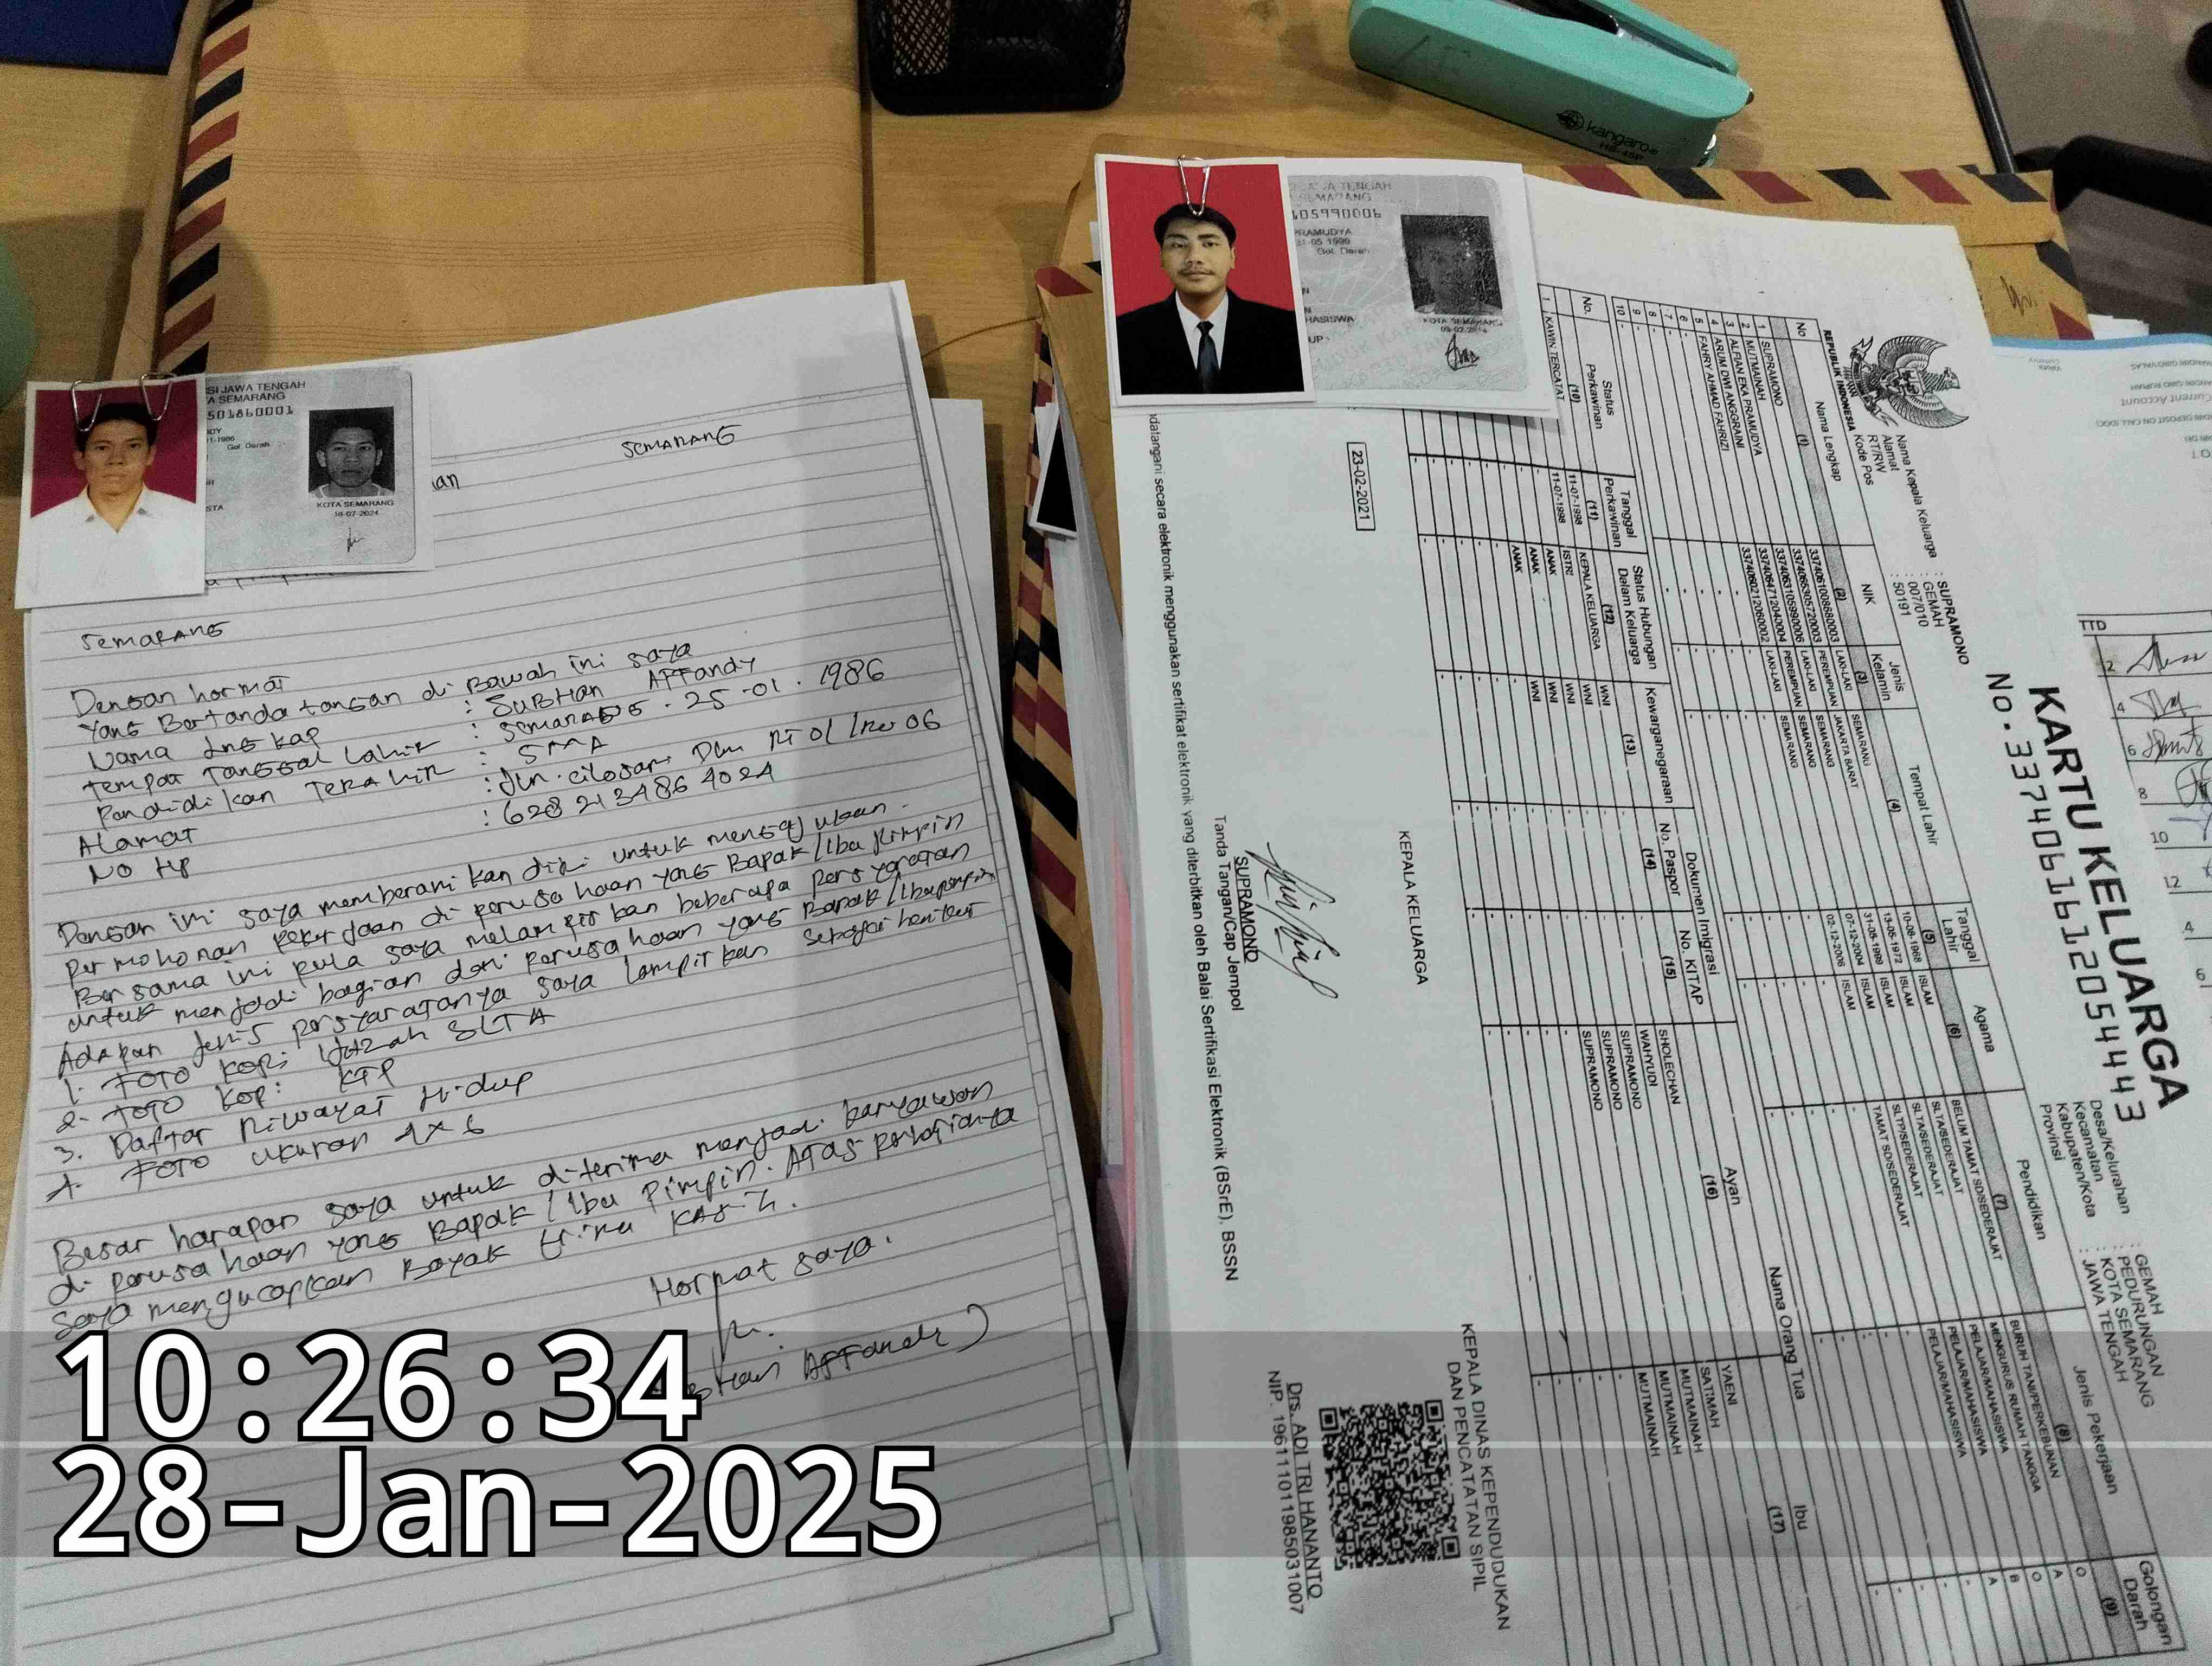 kangaro®
HS-45P
SI JAWA TENGAH
A SEMARANG
501860001
1-1986
Gol. Darah
STA
KOTA SEMARANG
18-07-2024
SEMARANG
an
SEMARANG
Dengan hormat
Yang Bertanda tangan di Bawah ini saya
Nama Lngkap : SUBHan AFFandy
Tempat Tanggal Lahir : SEMARANG . 25 -01 . 1986
Pendidikan TERAkhir : SMA
Alamat : Jln. cilosari Dlm RT 01 / RW 06
No Hp : 628 213486 4024
Dengan ini saya memberanikan diri untuk mengajukan.
Permohonan Pekerjaan di perusahaan yang Bapak/Ibu Pimpin
Bersama ini pula saya melampirkan beberapa persyaratan
untuk menjadi bagian dari perusahaan yang Bapak/Ibu pimpin
Adapan jenis persyaratanya saya lampirkan sebagai berikut
1. FOTO Kopi Ijazah SLTA
2. FOTO Kopi KTP
3. Daftar Riwayat Hidup
4. FOTO ukuran 4x6
Besar harapan saya untuk diterima menjadi karyawan
di perusahaan yang Bapak/Ibu Pimpin. Atas perhatianya
saya mengucapkan Bayak trima KASih.
Hormat saya.
AFFandy)
10:26:34
28-Jan-2025
TENGAH
SEMARANG
105990006
PRAMUDYA
Gol. Darah
HASISWA
KOTA SEMARANG
REPUBLIK INDONESIA
KARTU KELUARGA
No. 337406161205443
Nama Kepala Keluarga : SUPRAMONO
Alamat : GEMAH
RT/RW : 007/010
Kode Pos : 50191
Desa/Kelurahan : GEMAH
Kecamatan : PEDURUNGAN
Kabupaten/Kota : KOTA SEMARANG
Provinsi : JAWA TENGAH
No Nama Lengkap NIK Jenis Kelamin Tempat Lahir Tanggal Lahir Agama Pendidikan Jenis Pekerjaan Golongan Darah
(1) (2) (3) (4) (5) (6) (7) (8) (9)
1 SUPRAMONO LAKI-LAKI SEMARANG 10-08-1968 ISLAM BELUM TAMAT SD/SEDERAJAT BURUH TANI/PERKEBUNAN O
2 MUTMAINAH PEREMPUAN JAKARTA BARAT ISLAM SLTA/SEDERAJAT MENGURUS RUMAH TANGGA A
3 ALFIAN EKA PRAMUDYA LAKI-LAKI SEMARANG 31-05-1999 ISLAM SLTA/SEDERAJAT PELAJAR/MAHASISWA O
4 ARUM DWI ANGGRAINI PEREMPUAN SEMARANG 07-12-2004 ISLAM SLTP/SEDERAJAT PELAJAR/MAHASISWA B
5 FAHRY AHMAD FAHRIZI LAKI-LAKI SEMARANG 02-12-2006 ISLAM TAMAT SD/SEDERAJAT PELAJAR/MAHASISWA A
6 -
7 -
8 -
9 -
10 -
No. Status Perkawinan Tanggal Perkawinan Status Hubungan Dalam Keluarga Kewarganegaraan Dokumen Imigrasi Nama Orang Tua
No. Paspor No. KITAP Ayah Ibu
(10) (11) (12) (13) (14) (15) (16) (17)
1 KAWIN TERCATAT 11-07-1998 KEPALA KELUARGA WNI - - SHOLECHAN YAENI
11-07-1998 ISTRI WNI - - WAHYUDI SATIMAH
ANAK WNI - - SUPRAMONO MUTMAINAH
ANAK WNI - - SUPRAMONO MUTMAINAH
ANAK WNI - - SUPRAMONO MUTMAINAH
23-02-2021
KEPALA KELUARGA
SUPRAMONO
Tanda Tangan/Cap Jempol
KEPALA DINAS KEPENDUDUKAN
DAN PENCATATAN SIPIL
Drs. ADI TRI HANANTO
NIP. 196111011985031007
ndatangani secara elektronik menggunakan sertifikat elektronik yang diterbitkan oleh Balai Sertifikasi Elektronik (BSrE), BSSN
Current Account
2
4
6
8
10
12
4
6